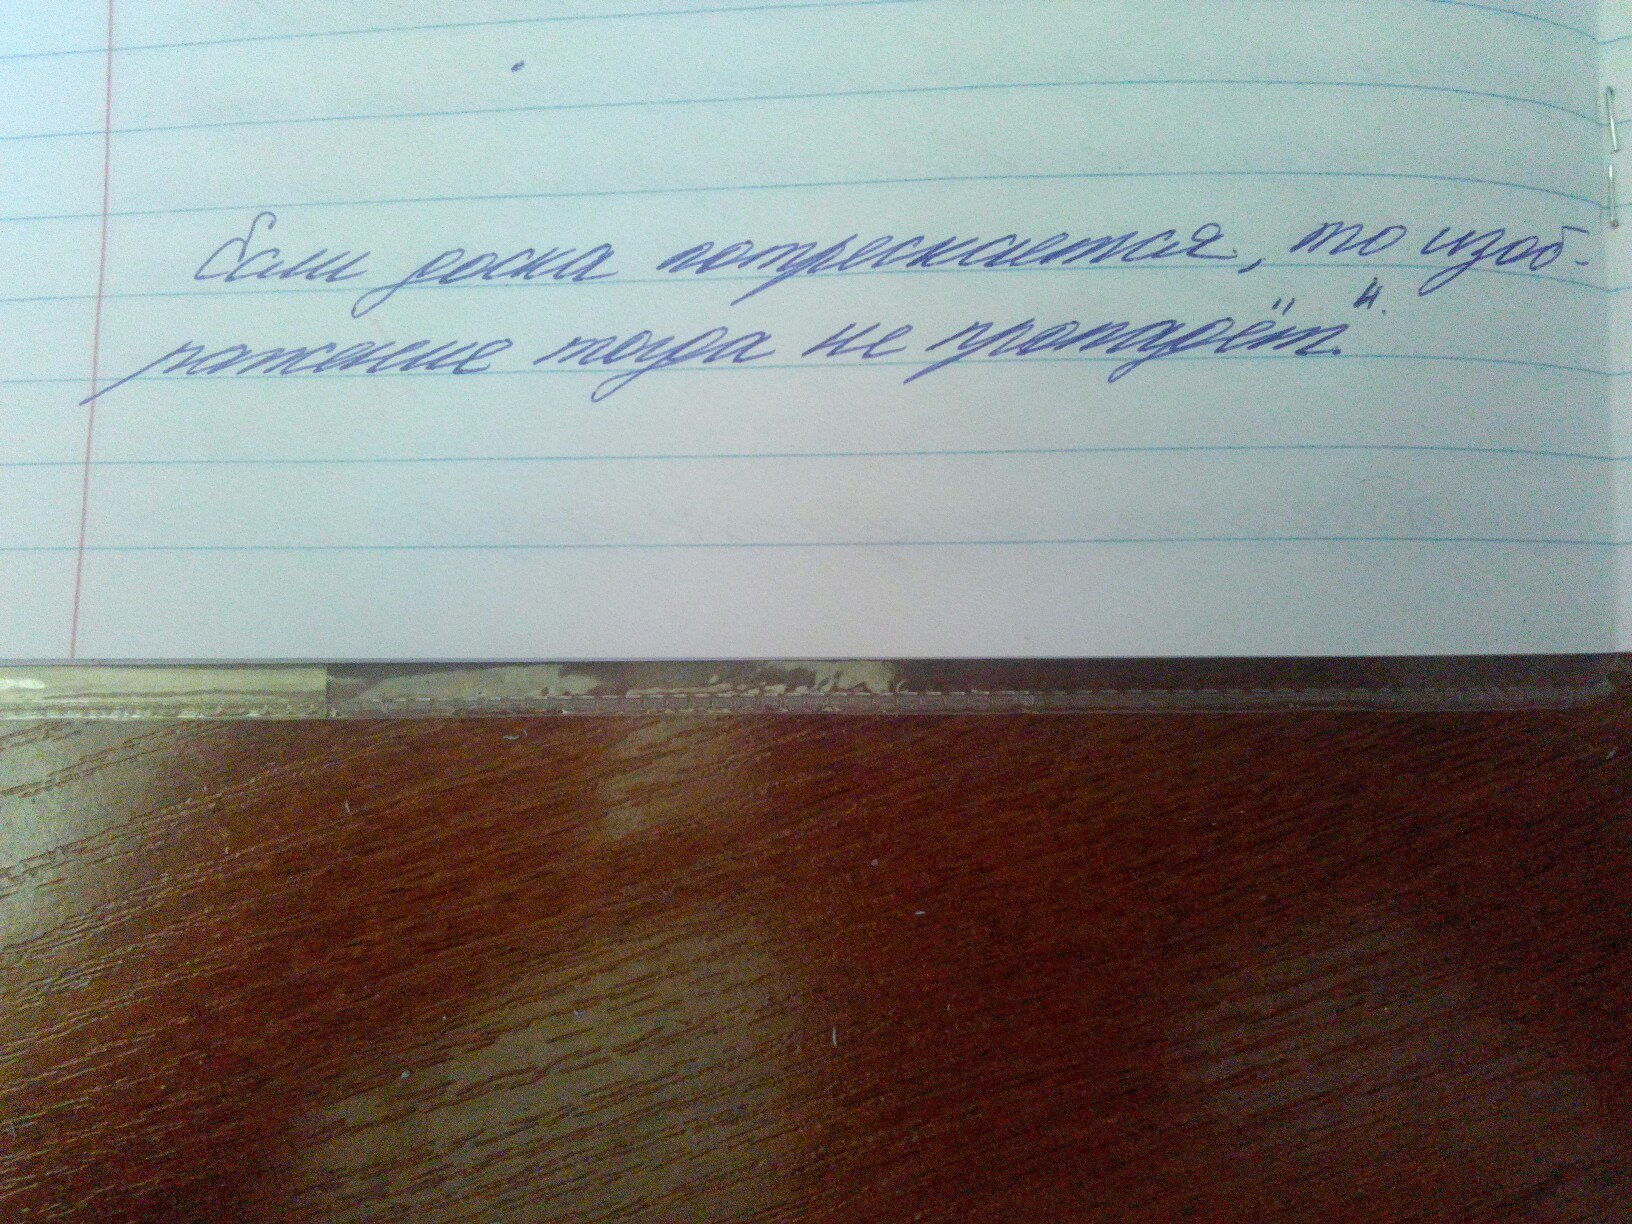 Если доска потрескается, то изоб-
ражение тогда не пропадёт.".